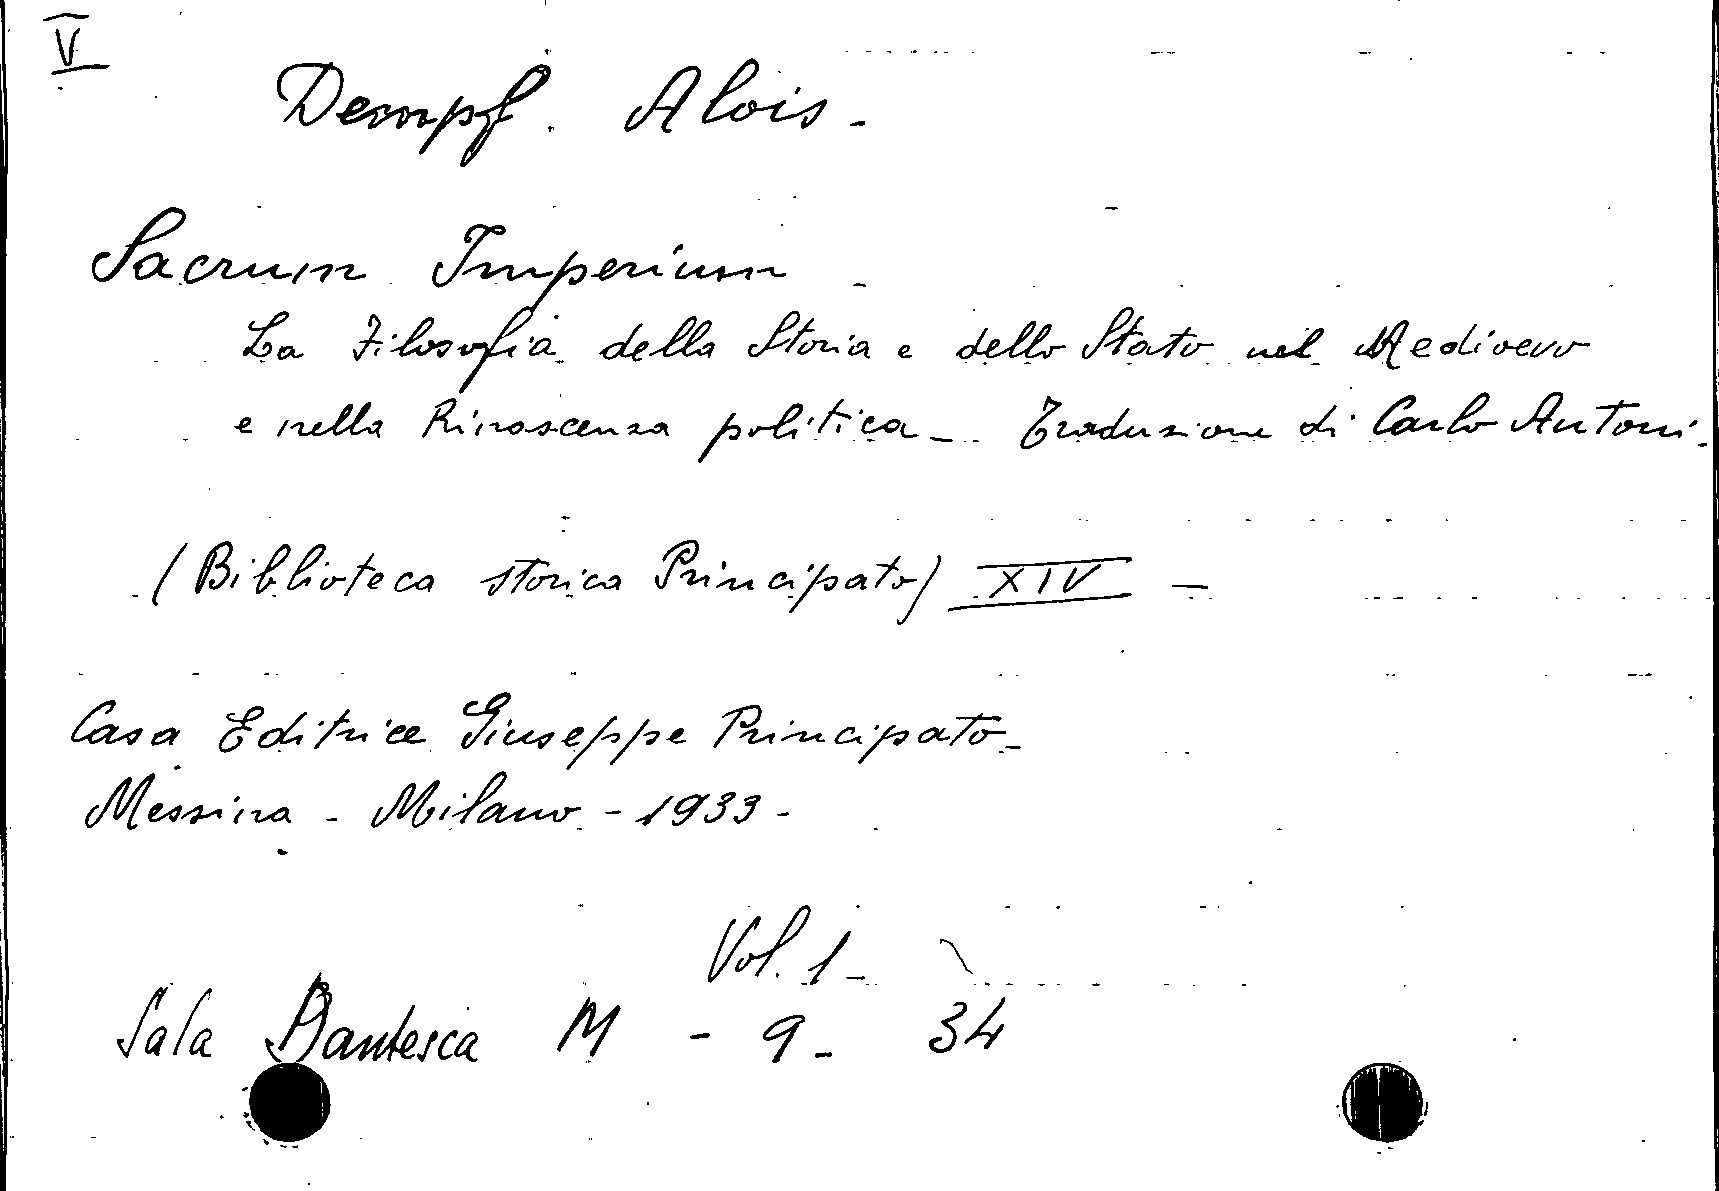 V
Dempf. Alois -
Sacrum Imperium
La Filosofia della Storia e dello Stato nel Medioevo
e nella Rinascenza politica - Traduzione di Carlo Antoni.
(Biblioteca storica Principato) XIV -
Casa Editrice Giuseppe Principato -
Messina - Milano - 1933 -
Vol. 1 -
Sala Dantesca M - 9 - 34